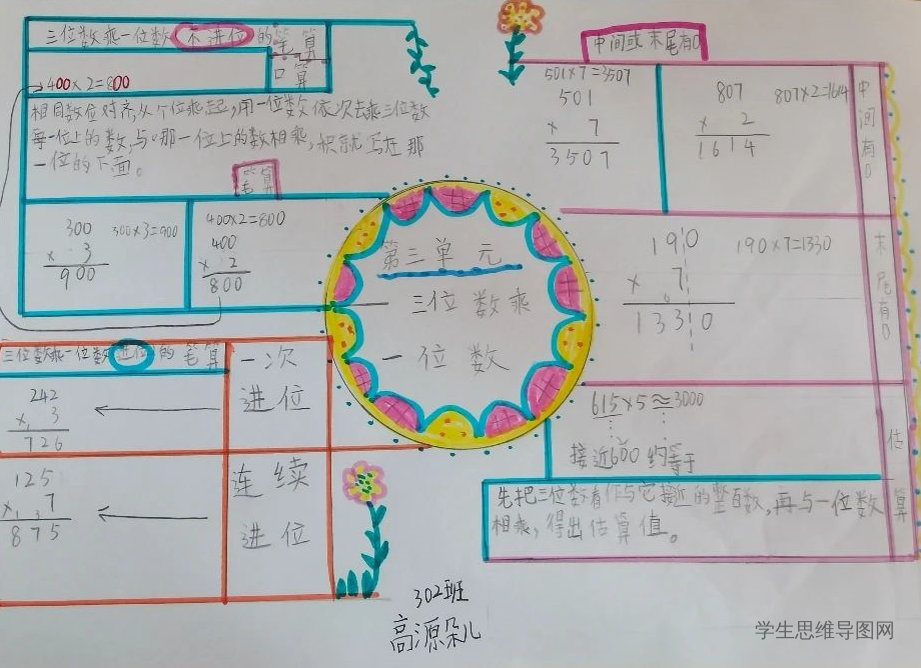 三位数乘一位数(不进位)的笔算
口算
400×2=800
相同数位对齐,从个位乘起,用一位数依次去乘三位数
每一位上的数,与那一位上的数相乘,积就写在那
一位的下面。
笔算
300
× 3
900
300×3=900
400×2=800
400
× 2
800
三位数乘一位数进位的笔算
242
× 3
726
一次
进位
125
× 7
875
连续
进位
第三单元
三位数乘
一位数
中间或末尾有0
501×7=3507
501
× 7
3507
807
× 2
1614
807×2=1614
中间有0
190
× 7
1330
190×7=1330
末尾有0
615×5≈3000
接近600 约等于
估算
先把三位数看作与它接近的整百数,再与一位数
相乘,得出估算值。
302班
高源朵儿
学生思维导图网